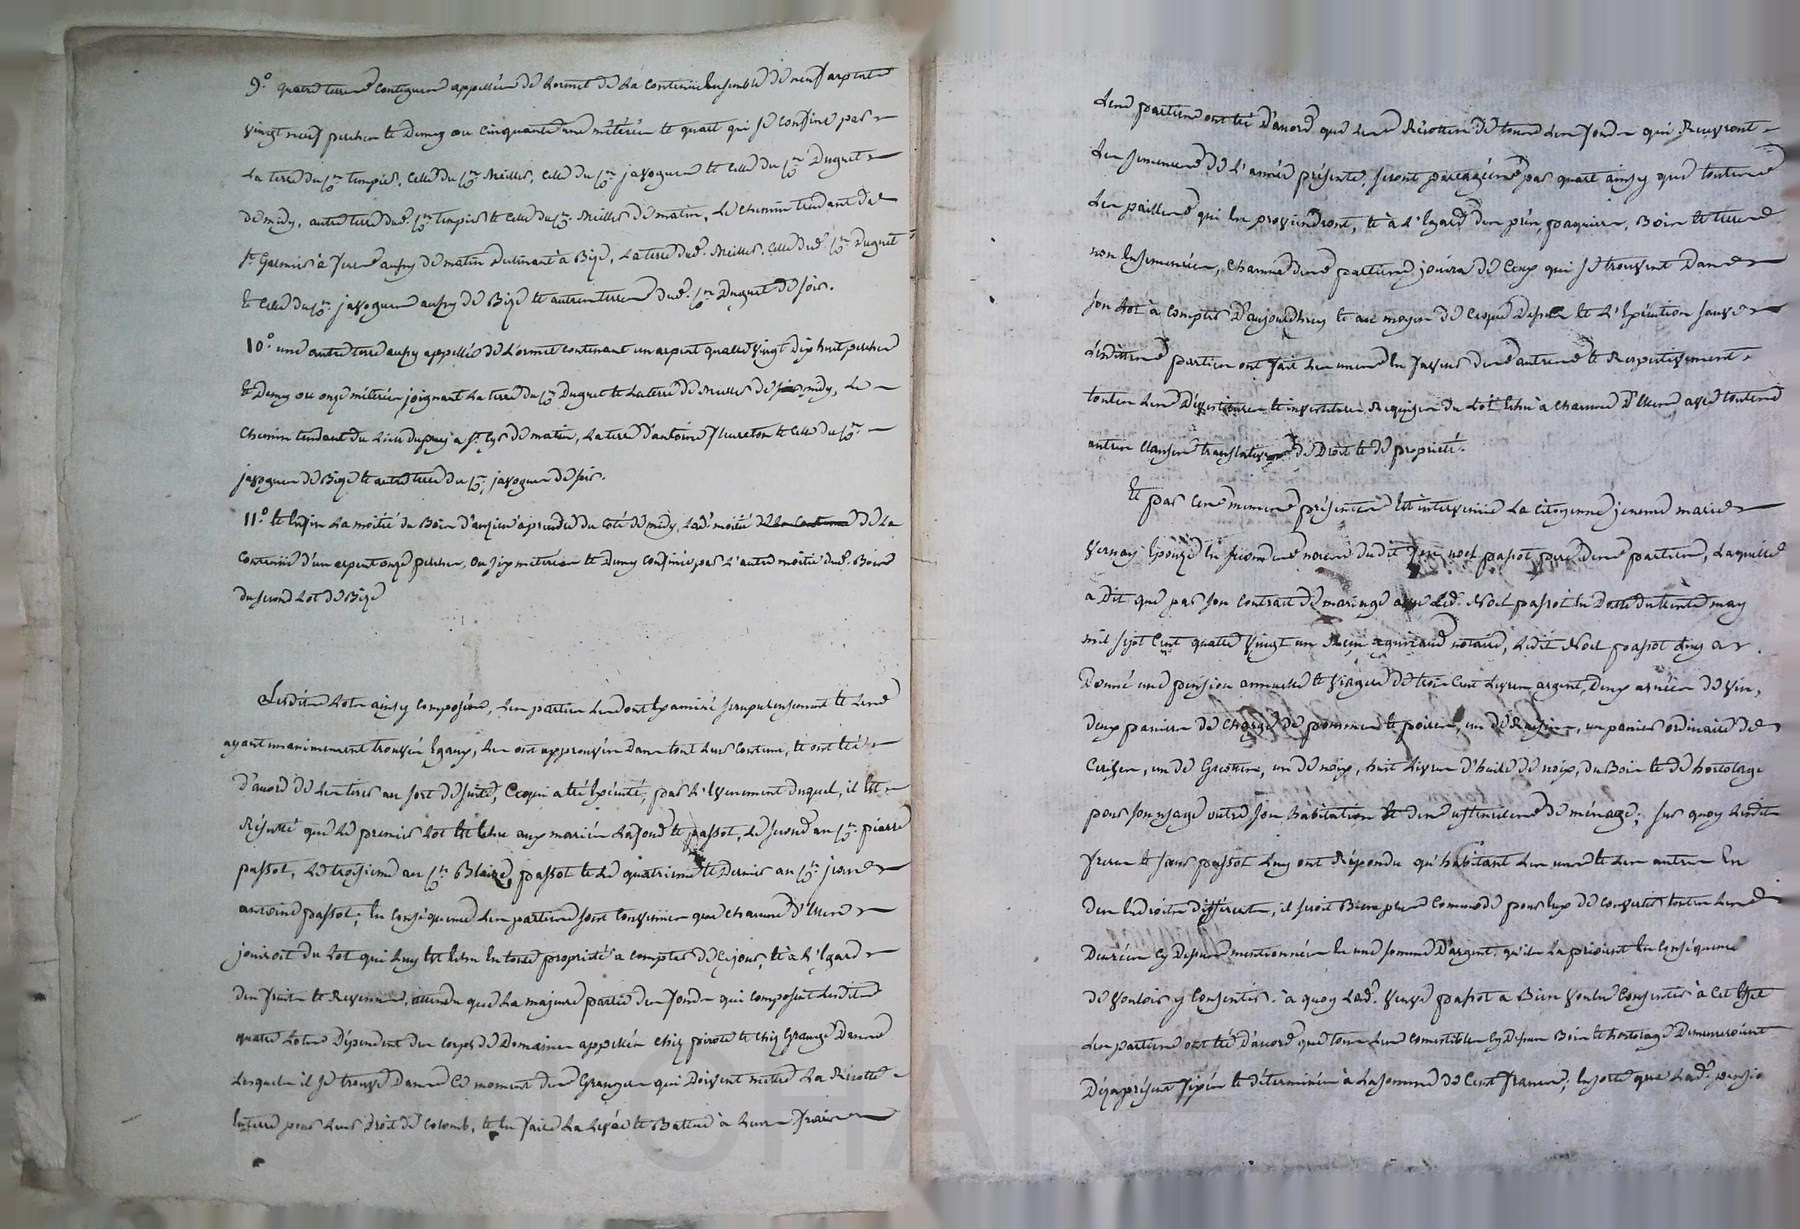 9.° quatre terres contigues appellées de Lormet de la contenüe ensemble de neuf arpents
vingt neuf perches et demy ou cinquante une méterées et quart qui se confine par
La terre du Cen tempier, celle du Cen Meiller, celle du Cen javogues et celle du Cen Duguet
de midy, autre terre dud. Cen tempier et celle du Cen Meiller de matin, Le chemin tendant de
St Galmier à feurs aussy de matin declinant à Bize, La terre dud. Meiller, celle dud. Cen Duguet
et celle du Cen javogues aussy de Bize et autres terres dud. Cen Duguet de soir.
10.° une autre terre aussy appellée de Lormet contenant un arpent quatre vingt dix huit perches
et demy ou onze méterées joignant La terre du Cen Duguet et La terre de Meiller de midy, Le
chemin tendant du Lieu dupuy a St Cyr de matin, La terre d'antoine fleureton et celle du Cen
javogues de Bize et autre terre du Cen javogues de soir.
11.° et enfin La moitié du Bois d'anzieu à prendre du coté de midy, Lad. moitié de La
contenüe d'un arpent onze perches, ou six méterées et demy confinée par L'autre moitié dud. Bois
du second Lot de Bize
Lesdits Lots ainsy composés, Les parties Les ont examiné scrupuleusement et Les
ayant unanimement trouvés egaux, Les ont approuvés dans tout leur contenu, et ont été
d'accord de Les tirer au sort de suite, Ce qui a été exécuté, par L'evenement duquel, il est
Résulté que Le premier Lot est echu aux mariés Lafond et passot, Le second au Cen pierre
passot, Le troisieme au Cen Blaize passot et Le quatrieme et Dernier au Cen jean
antoine passot; En conséquence Les parties sont convenues que chacune d'elles
jouiroit du Lot qui Luy est echu en toute propriété a compter de ce jour, et à L'egard
des fruits et Revenus, attendu que La majeure partie des fonds qui composent Lesdits
quatre Lots Dépendent des corps de Domaines appellés chez pirot et chez Grange Dans
Lesquels il se trouve Dans ce moment des Grangers qui doivent mettre La Récolte
Entiere pour Leur Droit de Colomb, et en faire La Levée et Batture à Leurs fraix
Les parties ont été D'accord que Les Récoltes de tous Les fonds qui Reçevront
Les semences de L'année présente, seront partagées par quart ainsy que toutes
Les pailles qui en proviendront, et à L'egard des prés, paquiers, Bois et terres
non Ensemencées, chacune des parties jouira de Ceux qui se trouvent Dans
son Lot à compter D'aujourdhuy et au moyen de Ce que Dessus et L'Exécution sauve
Lesdittes parties ont fait Les unes En faveur des autres et Respectivement
toutes Les Devestitures et investitures Requises du Lot échu à chacune D'elles avec toutes
autres clauses translatives de Droit et de propriété.
Et par Ces mêmes présentes Est intervenüe La citoyenne jeanne marie
vernay Epouze En secondes noces dudit feu noel passot pere des parties, Laquelle
a Dit que par son Contrat de mariage avec Led. Noel passot En Datte du trente may
mil sept Cent quatre vingt un Reçu notaire, Ledit Noel passot Luy a
Donné une pension annuelle et viagere de trois Cent Livres argent, Deux anées de vin,
deux paniers de charge de pommes et poires, un de Raisins, un panier ordinaire de
Cerises, un de Griottes, un de noix, huit Livres d'huile de noix, du Bois et de hortolage
pour son usage outre son habitation et des ustencilles de ménage; sur quoy Lesdits
freres et sœur passot Luy ont Répondu qu'habitant Les uns et Les autres En
des Endroits differents, il seroit Bien plus Commode pour Eux de convertir toutes Les
Denrées cy Dessus mentionnées En une somme D'argent, qu'ils La prioient En Conséquence
de vouloir y Consentir. à quoy Lad. veuve passot a Bien voulu Consentir à Cet effet
Les parties ont été D'accord que tous Les comestibles cy Dessus Bois et hortolage Demeureroient
Dèsaprésent fixés et déterminés à La somme de Cent francs, En sorte que Lad. pensio